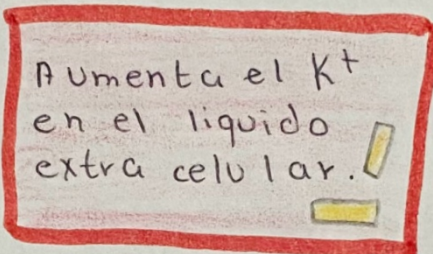 Aumenta el K⁺
en el liquido
extra celular.